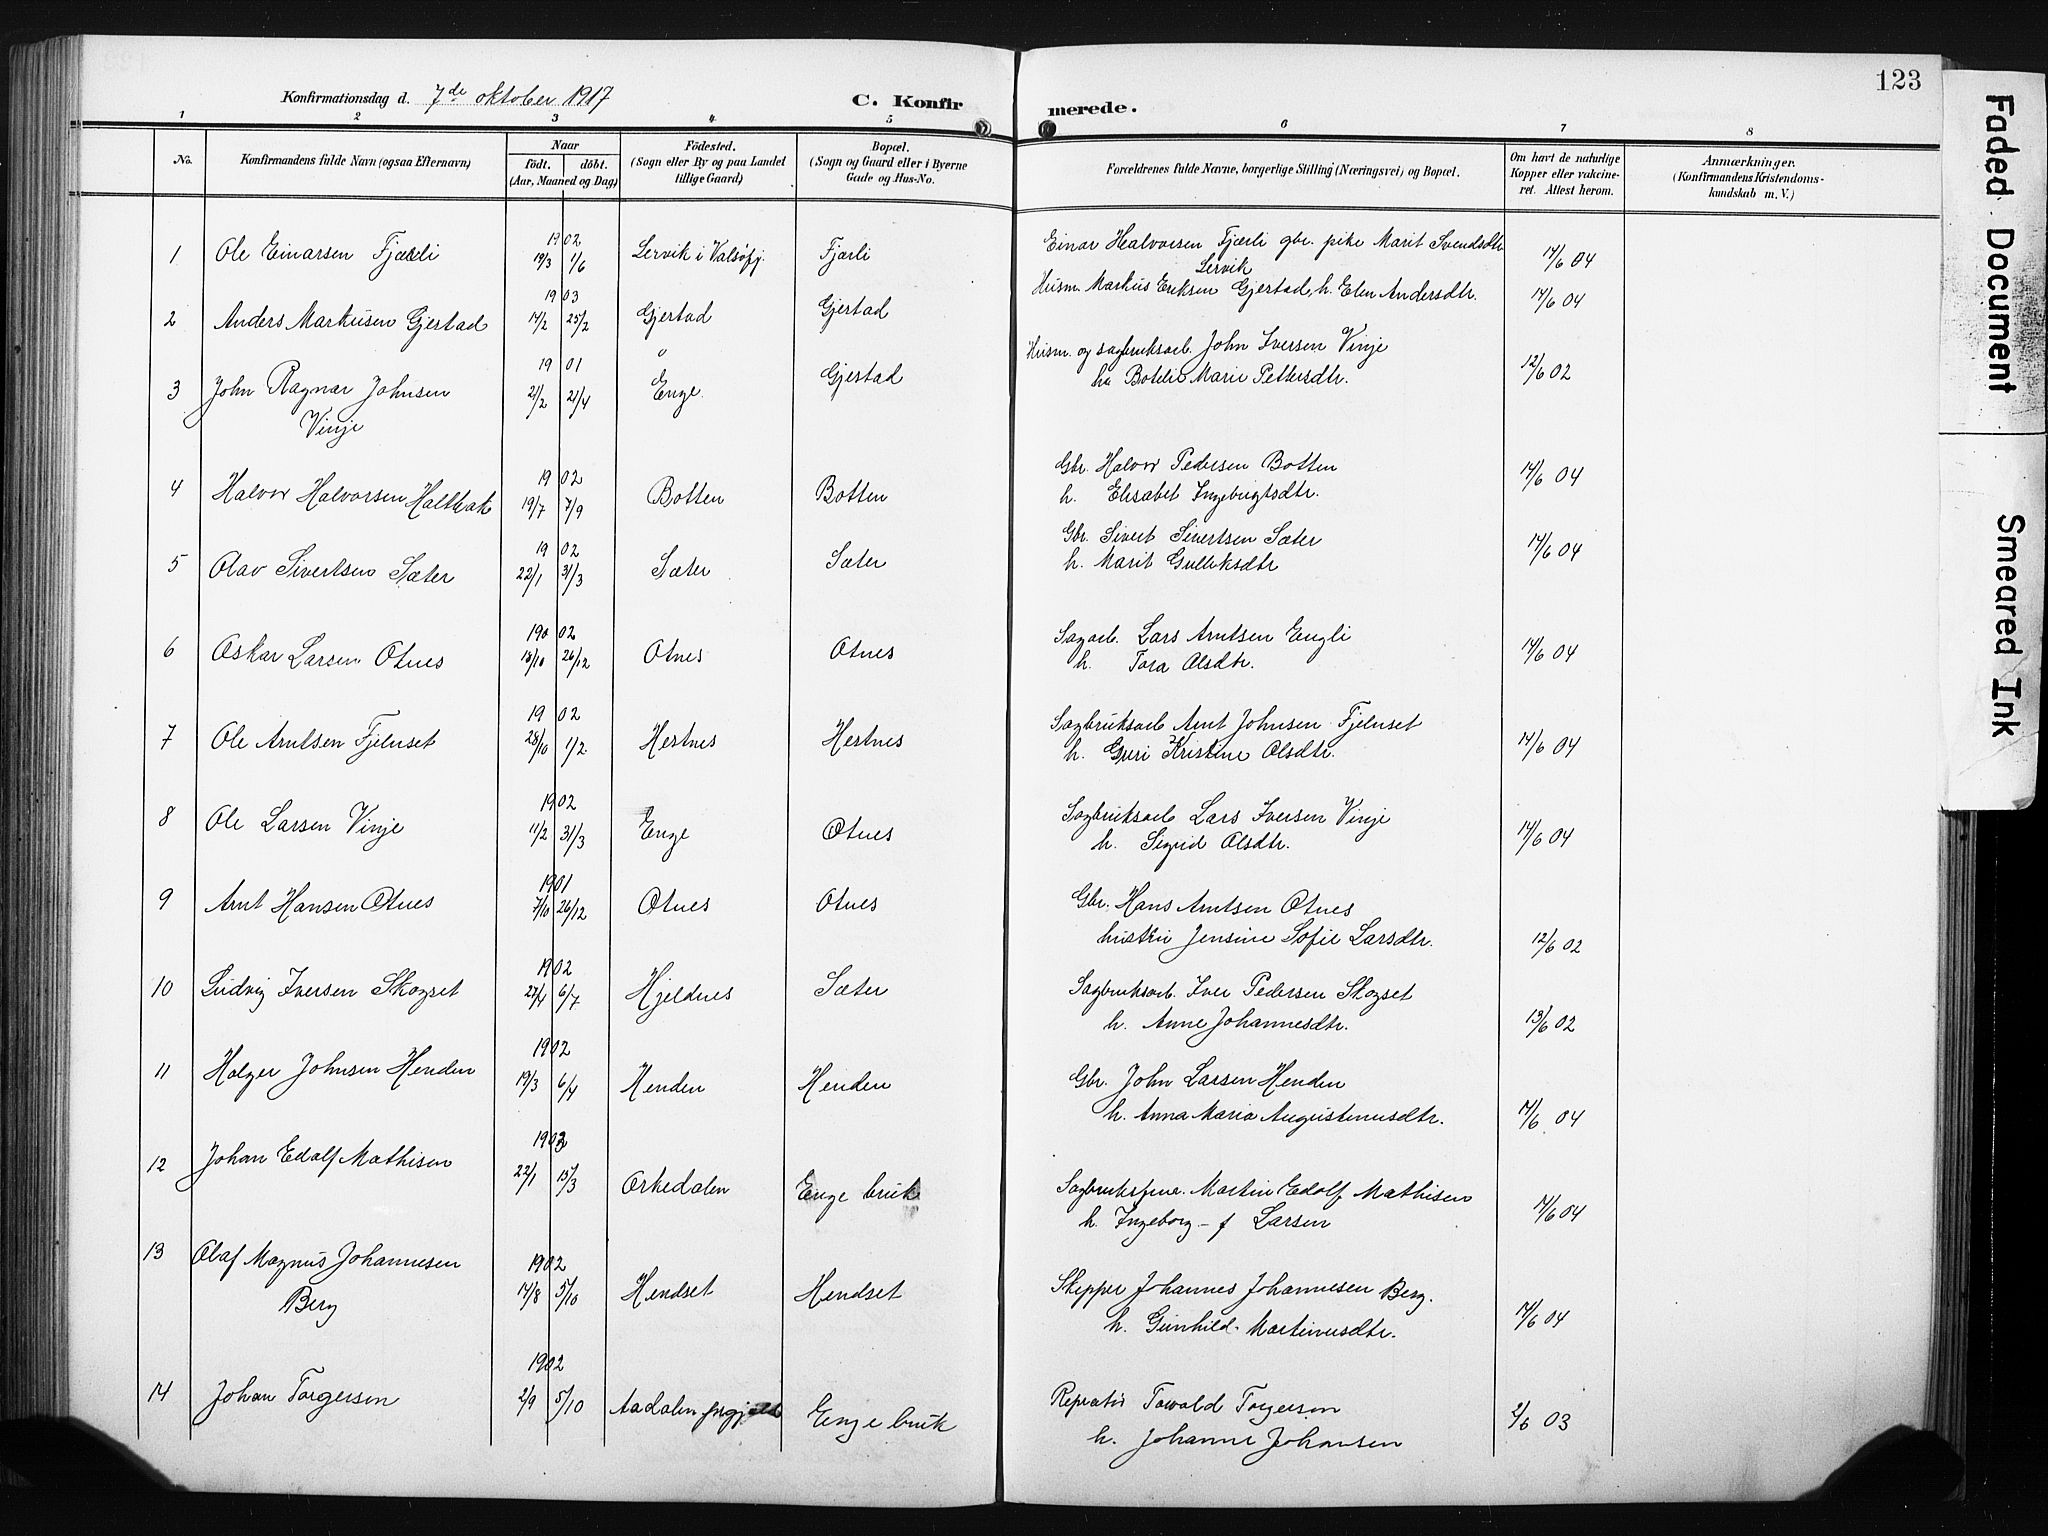 123
Konfirmationsdag d. 7de oktober 1917 C. Konfirmerede.
1 2 3 4 5 6 7 8
No. Konfirmandens fulde Navn (ogsaa Efternavn) Naar født. døbt. (Aar, Maaned og Dag) Fødested. (Sogn eller By og paa Landet tillige Gaard) Bopæl. (Sogn og Gaard eller i Byerne Gade og Hus-No. Forældrenes fulde Navne, borgerlige Stilling (Næringsvei) og Bopæl. Om havt de naturlige Kopper eller vakcineret. Attest herom. Anmærkninger. (Konfirmandens Kristendomskundskab m. V.)
1 Ole Einarsen Fjærli 1902 19/3 1/6 Lervik i Valsøfj. Fjærli Einar Halvorsen Fjærli gbr. pike Marit Svendsdtr 14/6 04
Lervik
2 Anders Markusen Gjerstad 1903 14/2 25/2 Gjerstad Gjerstad Husm. Markus Eriksen Gjerstad, h. Elen Andersdtr. 14/6 04
3 John Ragnar Johnsen 1901 21/2 21/4 " Enge. Gjerstad Husm. og sagbruksarb. John Iversen Vinje 12/6 02
Vinje h. Botelie Marie Pettersdtr.
4 Halvor Halvorsen Haltbak 1902 19/7 7/9 Botten Botten Gbr. Halvor Pedersen Botten 14/6 04
h. Elisabet Ingebrigtsdtr.
5 Olav Sivertsen Sæter 1902 22/1 31/3 Sæter Sæter Gbr. Sivert Sivertsen Sæter 14/6 04
h. Marit Gulleksdtr
6 Oskar Larsen Otnes 1902 18/10 26/12 Otnes Otnes Sagarb. Lars Arntsen Engli 14/6 04
h. Tora Olsdtr.
7 Ole Arntsen Fjelnset 1902 28/10 1/2 Hestnes Hestnes Sagbruksarb Arnt Johnsen Fjelnset 14/6 04
h. Guri Kristine Olsdtr.
8 Ole Larsen Vinje 1902 11/2 31/3 Enge Otnes Sagbruksarb Lars Iversen Vinje 14/6 04
h. Sigrid Olsdtr.
9 Arnt Hansen Otnes 1901 7/10 26/12 Otnes Otnes Gbr. Hans Arntsen Otnes
hustru Jensine Sofie Larsdtr. 12/6 02
10 Ludvig Iversen Skogset 1902 27/4 6/7 Hjeldnes Sæter Sagbruksarb. Iver Pedersen Skogset
h. Anne Johannesdtr. 13/6 02
11 Holger Johnsen Henden 1902 19/3 6/4 Henden Henden Gbr. John Larsen Henden
h. Anna Maria Augustinusdtr. 14/6 04
12 Johan Edolf Mathisen 1903 22/1 15/3 Orkedalen Enge bruk Martin Edolf Mathisen 14/6 04
h. Ingeborg - f Larsen
13 Olaf Magnus Johannesen 1902 14/8 5/10 Hendset Hendset Skepper Johannes Johannesen Berg.
Berg h. Gunhild Martinusdtr. 14/6 04
14 Johan Torgersen 1902 2/9 5/10 Aadalen prgjæld Enge bruk Torvald Torgersen 2/6 03
h. Johanne Johansen
Faded Document
Smeared Ink